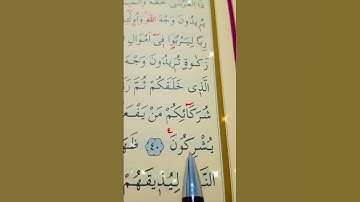 ذَا الْقُرْبٰى حَقَّهُ وَالْمِ
يُرٖيدُونَ وَجْهَ اللّٰهِ وَاُو۬لٰٓئِ
رِبًا لِيَرْبُوَا فٖٓي اَمْوَالِ
زَكٰوةٍ تُرٖيدُونَ وَجْهَ
اَلَّذٖي خَلَقَكُمْ ثُمَّ رَ
شُرَكَٓائِكُمْ مَنْ يَفْعَ
يُشْرِكُونَ ﴿٤٠﴾ ظَهَ
النَّ لِيُذٖيقَهُمْ